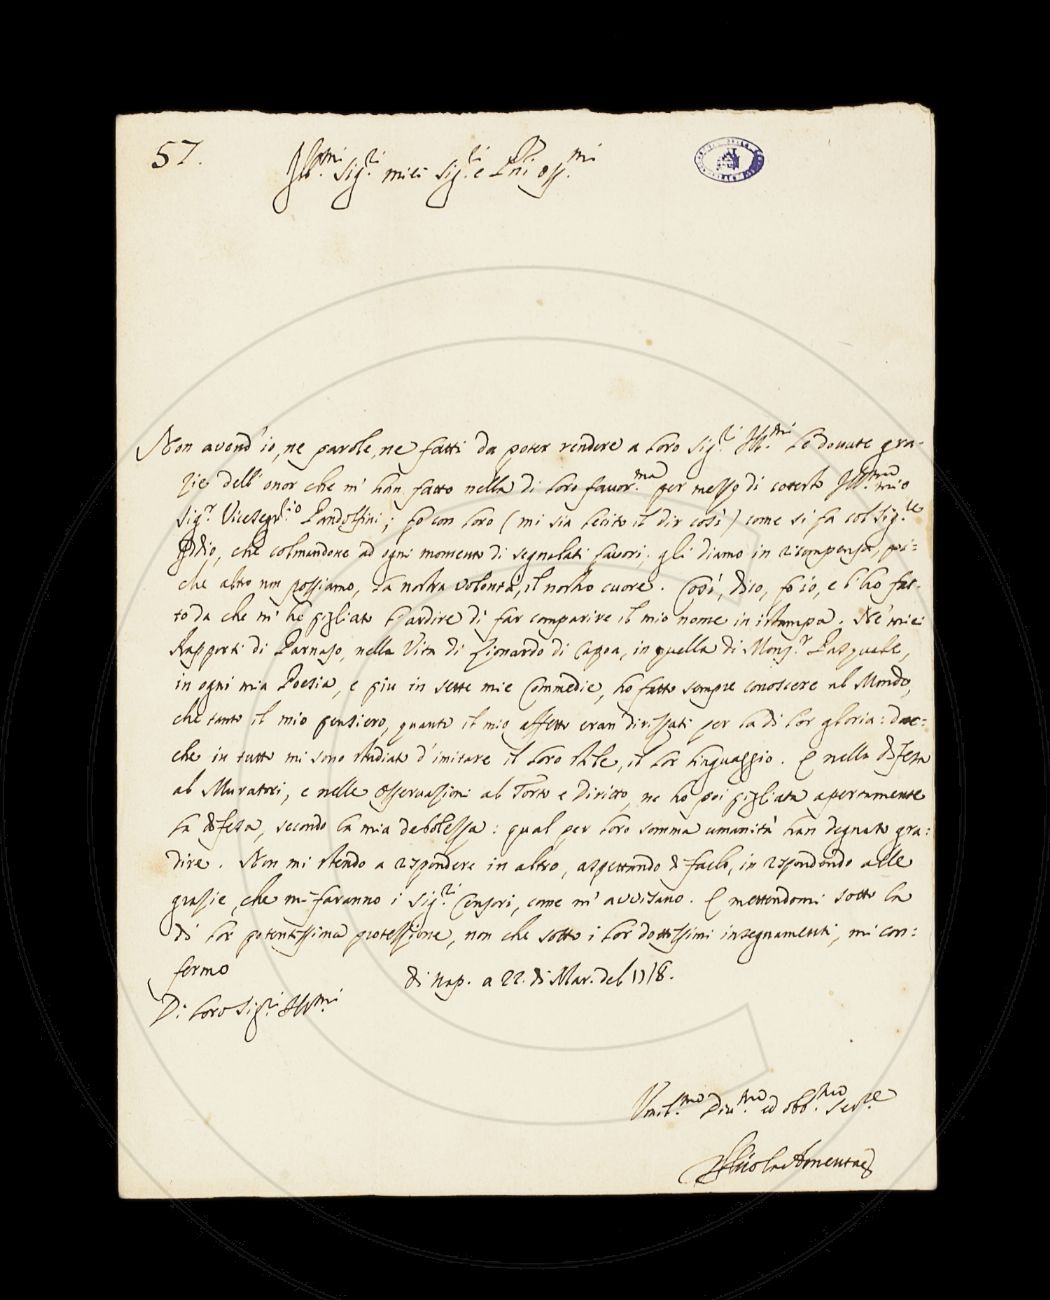 57.
Ill.mi Sig.ri miei Sig.ri e P̃ni oss.mi
Non avend'io, ne parole, ne fatti da poter rendere a loro Sig.ri Ill.mi le dovute gra-
zie dell'onor che m'han fatto nella di loro favor.ma per mezzo di cotesto Ill.mo mio
Sig.r Viceseg.rio Pandolfini; fo con loro (mi sia lecito il dir così) come si fa col Sig.re
Iddio, che colmandone ad ogni momento di segnalati favori, gli diamo in ricompensa, poi=
che altro non possiamo, la nostra volontà, il nostro cuore. Così, dico, fo io, e l'ho fat-
to da che m'ho pigliato l'ardire di far comparire il mio nome in istampa. Ne' miei
Rapporti di Parnaso, nella Vita di Lionardo di Capoa, in quella di Mons.r Pasquale,
in ogni mia Poesia, e più in sette mie Commedie, ho fatto sempre conoscere al Mondo,
che tanto il mio pensiero, quanto il mio affetto eran dirizzati per la di lor gloria:
che in tutto mi sono studiato d'imitare il loro stile, il lor linguaggio. E nella difesa
al Muratori, e nelle Osservazioni al Torto e Diritto, ne ho poi pigliata apertamente
la difesa, secondo la mia debolezza: qual, per loro somma umanità han degnato gra=
dire. Non mi stendo a rispondere in altro, aspettando di farlo, in rispondendo alle
grazie, che mi faranno i Sig.ri Censori, come m'avvisano. E mettendomi sotto la
di lor potentissima protezzione, non che sotto i lor dottissimi insegnamenti, mi con=
fermo
di Nap. a 22. di Mar. del 1718.
Di loro Sig.ri Ill.mi
Umil.mo Div.mo ed obb.mo Ser.re
Niccolo Amenta